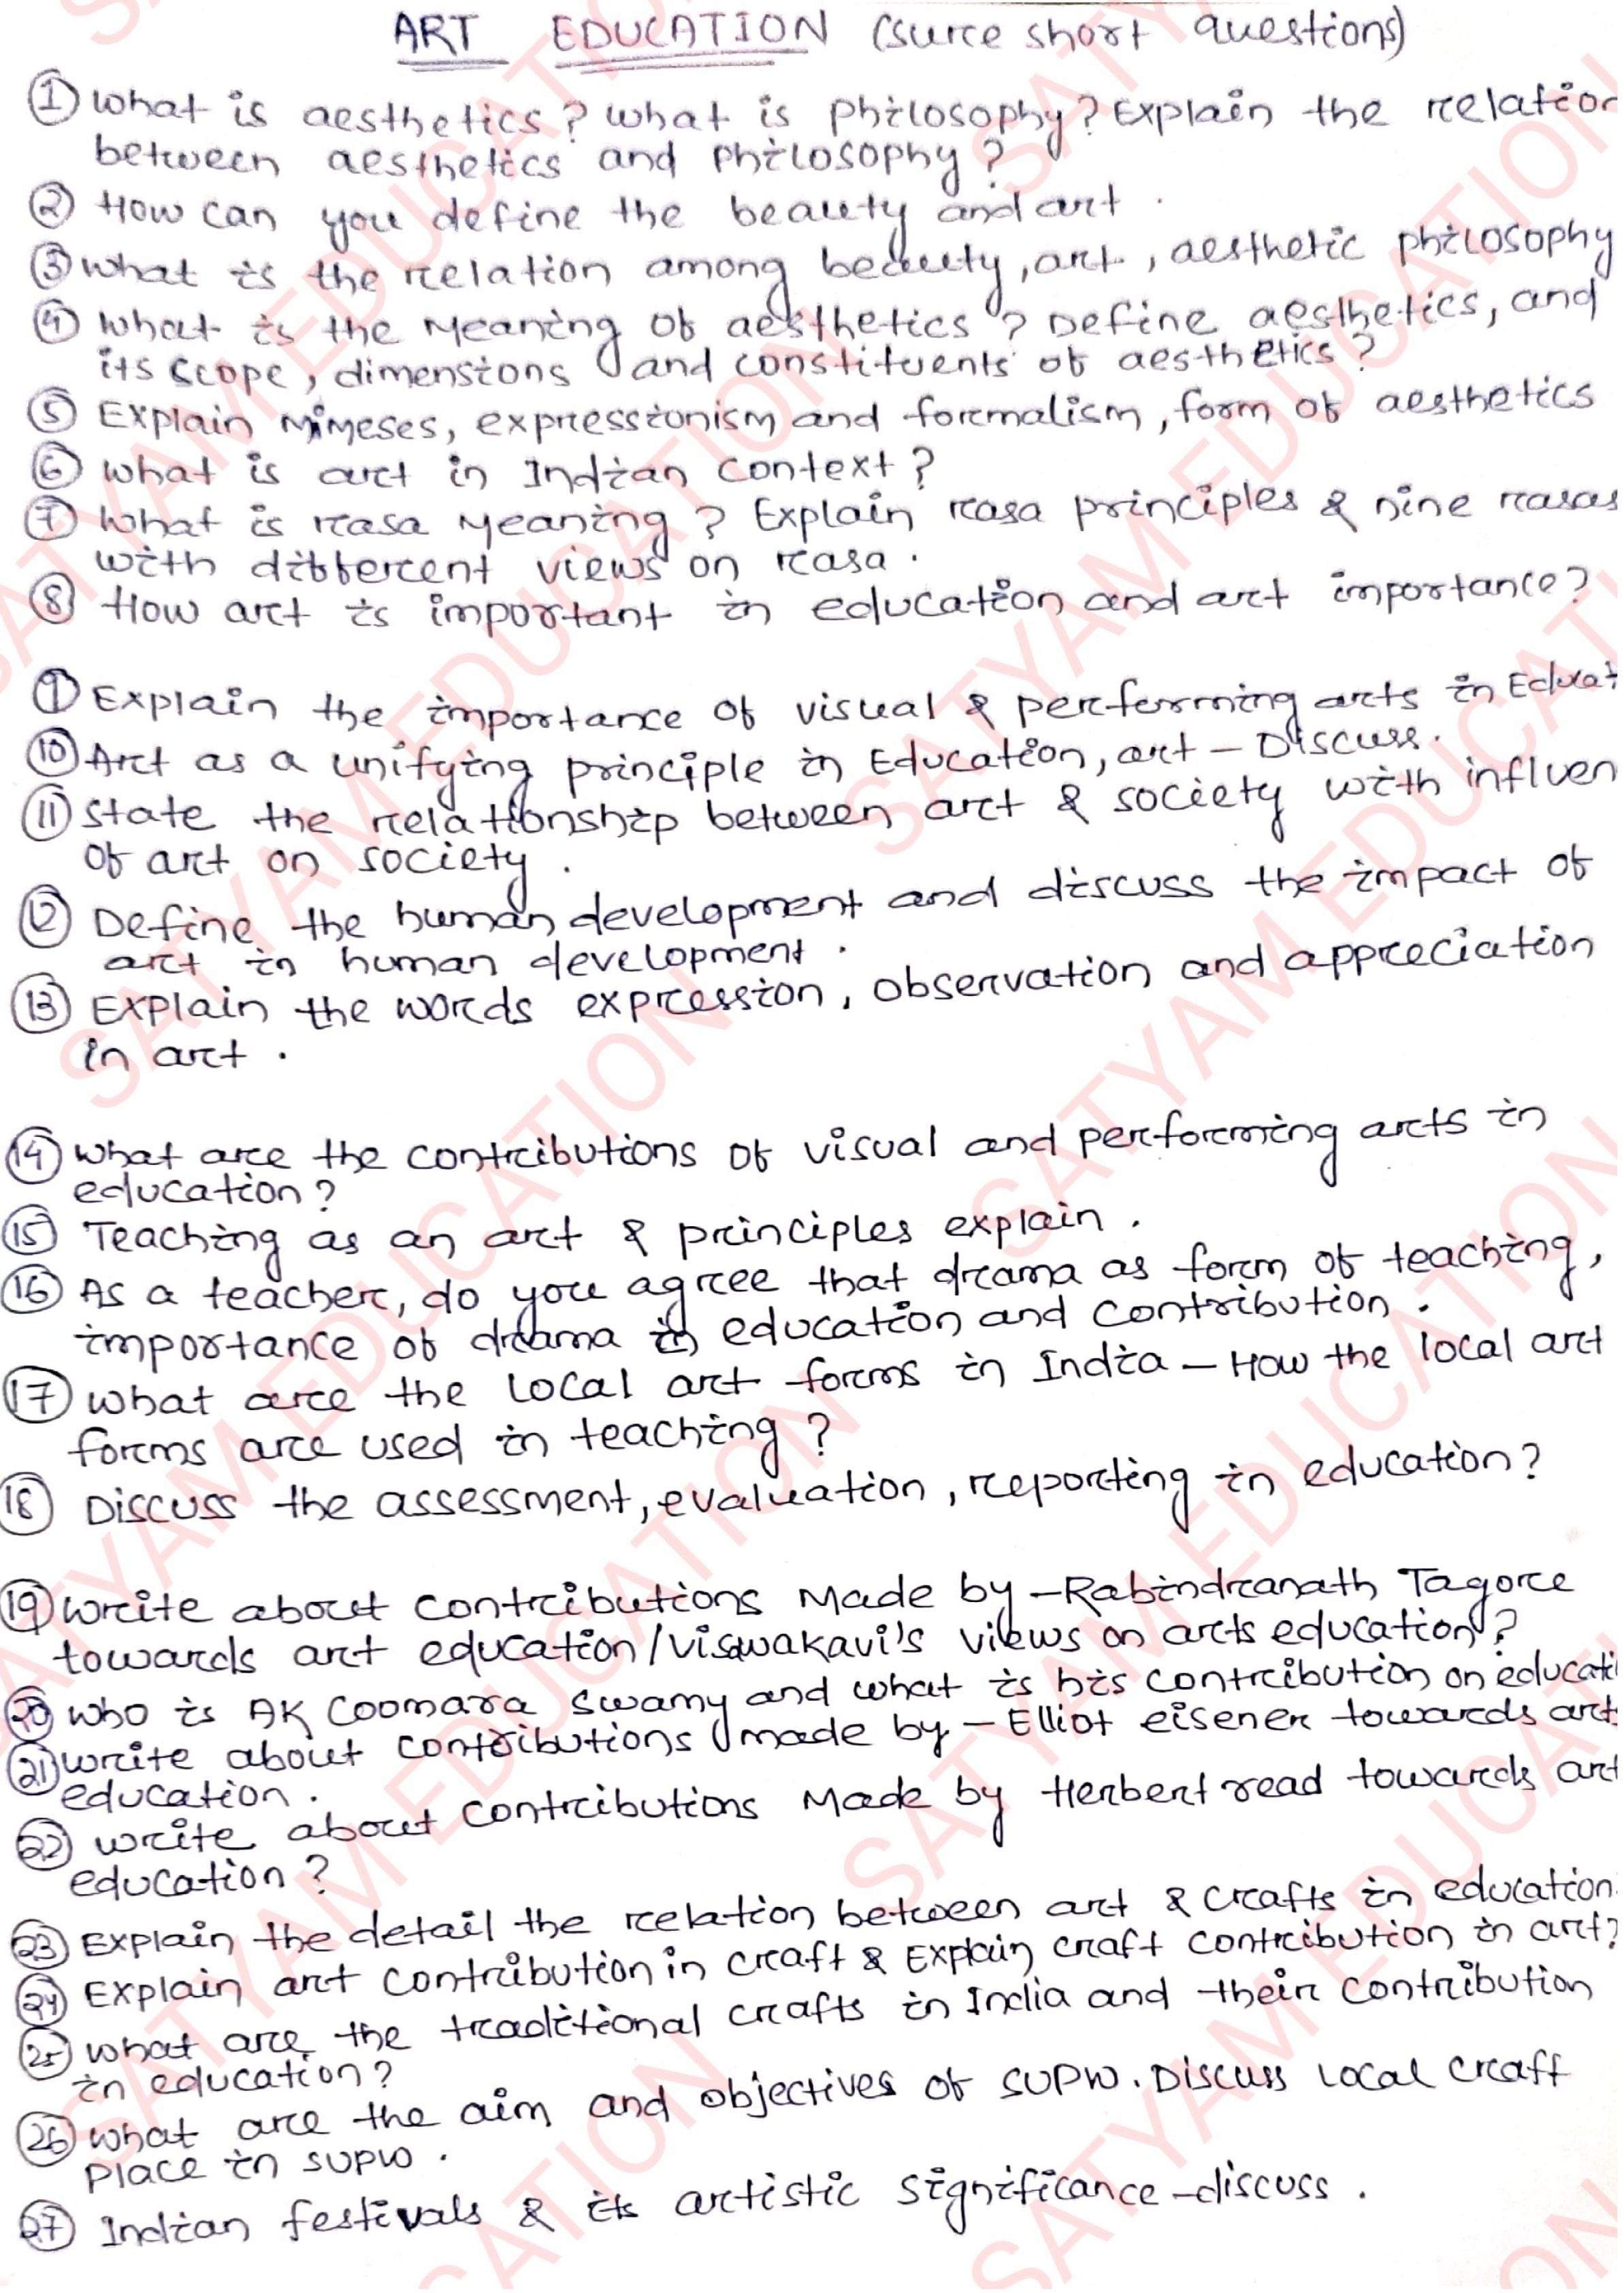 ART EDUCATION (sure short questions)
① What is aesthetics? What is philosophy? Explain the relation
between aesthetics and philosophy?
② How can you define the beauty and art.
③ What is the relation among beauty, art, aesthetic philosophy
④ What is the Meaning of aesthetics? Define aesthetics, and
its scope, dimensions and constituents of aesthetics?
⑤ Explain Mimeses, expressionism and formalism, form of aesthetics
⑥ What is art in Indian context?
⑦ What is rasa Meaning? Explain rasa principles & nine rasas
with different views on rasa.
⑧ How art is important in education and art importance?
⑨ Explain the importance of visual & performing arts in Educat
⑩ Art as a unifying principle in Education, art - Discuss.
⑪ State the relationship between art & society with influen
of art on society.
⑫ Define the human development and discuss the impact of
art in human development.
⑬ Explain the words expression, observation and appreciation
in art.
⑭ What are the contributions of visual and performing arts in
education?
⑮ Teaching as an art & principles explain.
⑯ As a teacher, do you agree that drama as form of teaching,
importance of drama in education and contribution.
⑰ What are the local art forms in India - How the local art
forms are used in teaching?
⑱ Discuss the assessment, evaluation, reporting in education?
⑲ Write about contributions Made by - Rabindranath Tagore
towards art education/Viswakavi's views on arts education?
⑳ Who is AK Coomara Swamy and what is his contribution on educati
㉑ Write about contributions made by - Elliot eisener towards art
education.
㉒ Write about contributions Made by Herbert read towards art
education?
㉓ Explain the detail the relation between art & crafts in education.
㉔ Explain art contribution in craft & Explain craft contribution in art?
㉕ What are the traditional crafts in India and their contribution
in education?
㉖ What are the aim and objectives of SUPW. Discuss local craft
place in SUPW.
㉗ Indian festivals & its artistic significance - discuss.
SATYAM EDUCATION